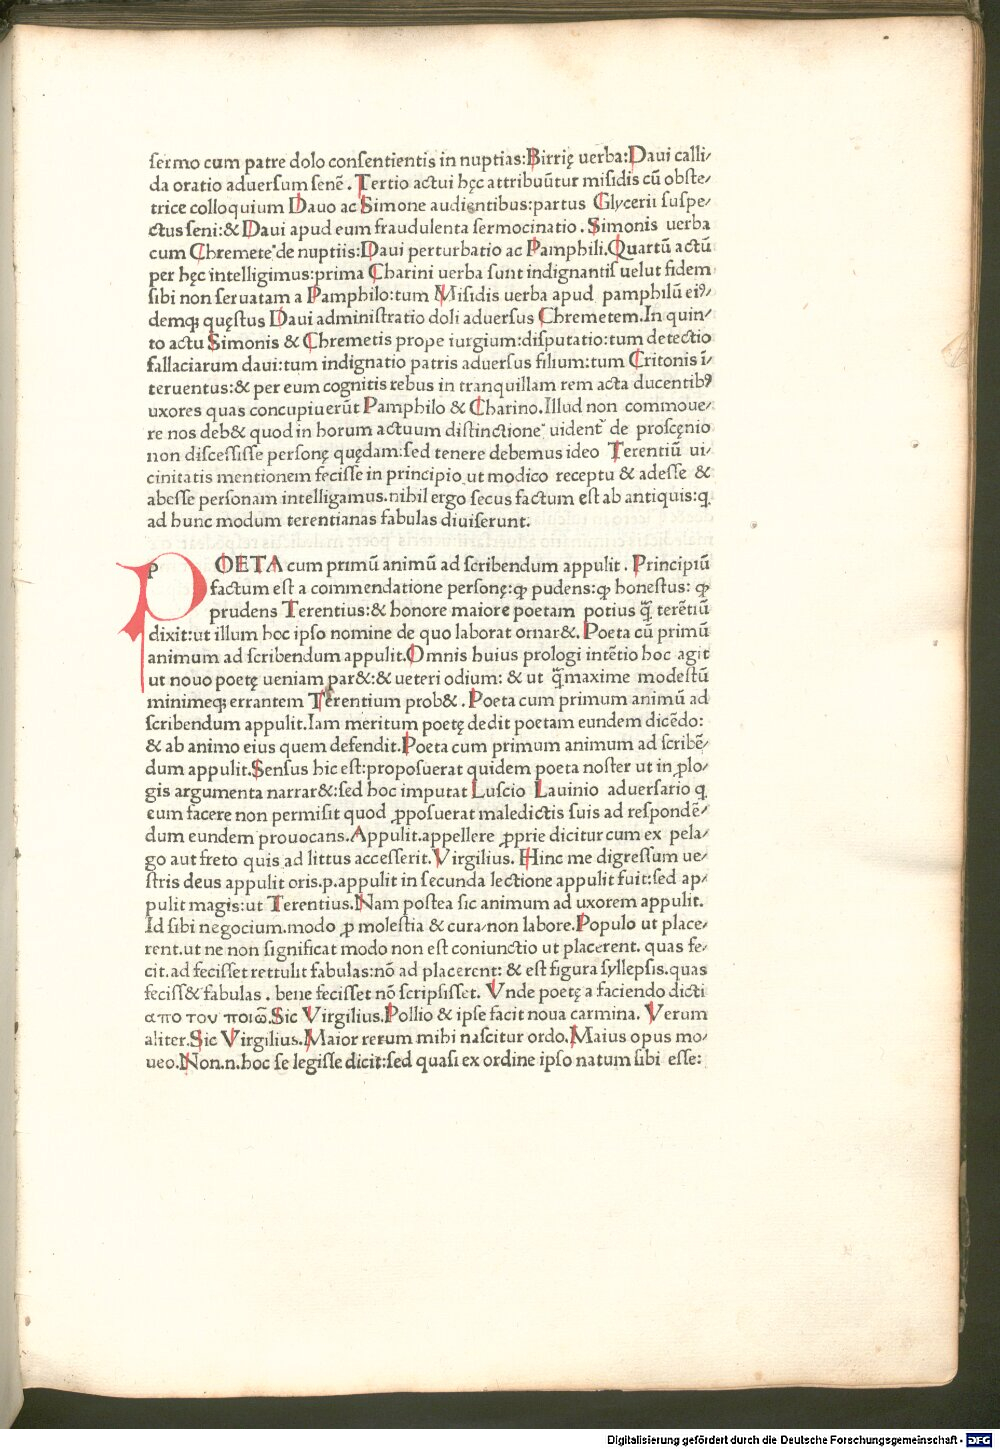 sermo cum patre dolo consentientis in nuptias:Birrię uerba:Daui calli⸗
da oratio aduersum senẽ. Tertio actui hęc attribuũtur misidis cũ obste⸗
trice colloquium Dauo ac Simone audientibus:partus Glycerii suspe⸗
ctus seni:& Daui apud eum fraudulenta sermocinatio. Simonis uerba
cum Chremete de nuptiis:Daui perturbatio ac Pamphili.Quartũ actũ
per hęc intelligimus:prima Charini uerba sunt indignantis uelut fidem
sibi non seruatam a Pamphilo:tum Misidis uerba apud pamphilũ eiꝰ⸗
demqꝫ quęstus Daui administratio doli aduersus Chremetem.In quin⸗
to actu Simonis & Chremetis prope iurgium:disputatio:tum detectio
fallaciarum daui:tum indignatio patris aduersus filium:tum Critonis ĩ⸗
teruentus:& per eum cognitis rebus in tranquillam rem acta ducentibꝰ
uxores quas concupiuerũt Pamphilo & Charino.Illud non commoue⸗
re nos deb& quod in horum actuum distinctione uident̃ de proscęnio
non discessisse personę quędam:sed tenere debemus ideo Terentiũ ui⸗
cinitatis mentionem fecisse in principio ut modico receptu & adesse &
abesse personam intelligamus.nihil ergo secus factum est ab antiquis:q
ad hunc modum terentianas fabulas diuiserunt.
POETA cum primũ animũ ad scribendum appulit. Principiũ
factum est a commendatione personę:ꝙ pudens:ꝙ honestus: ꝙ
prudens Terentius:& honore maiore poetam potius q̃ terẽtiũ
dixit:ut illum hoc ipso nomine de quo laborat ornar&.Poeta cũ primũ
animum ad scribendum appulit.Omnis huius prologi intẽtio hoc agit
ut nouo poetę ueniam par&:& ueteri odium: & ut q̃maxime modestũ
minimeqꝫ errantem Terentium prob&. Poeta cum primum animũ ad
scribendum appulit.Iam meritum poetę dedit poetam eundem dicẽdo:
& ab animo eius quem defendit.Poeta cum primum animum ad scribẽ⸗
dum appulit.Sensus hic est:proposuerat quidem poeta noster ut in ꝓlo⸗
gis argumenta narrar&:sed hoc imputat Luscio Lauinio aduersario q
eum facere non permisit quod ꝓposuerat maledictis suis ad respondẽ⸗
dum eundem prouocans.Appulit.appellere ꝓprie dicitur cum ex pela⸗
go aut freto quis ad littus accesserit.Virgilius. Hinc me digressum ue⸗
stris deus appulit oris.p.appulit in secunda lectione appulit fuit:sed ap⸗
pulit magis:ut Terentius.Nam postea sic animum ad uxorem appulit.
Id sibi negocium.modo ꝓ molestia & cura/non labore.Populo ut place⸗
rent.ut ne non significat modo non est coniunctio ut placerent. quas fe⸗
cit.ad fecisset rettulit fabulas:nõ ad placerent: & est figura syllepsis.quas
feciss& fabulas. bene fecisset nõ scripsisset. Vnde poetę a faciendo dicti
απο του ποιω̃.Sic Virgilius.Pollio & ipse facit noua carmina. Verum
aliter.Sic Virgilius.Maior rerum mihi nascitur ordo.Maius opus mo⸗
ueo.Non.n.hoc se legisse dicit:sed quasi ex ordine ipso natum sibi esse:
Digitalisierung gefördert durch die Deutsche Forschungsgemeinschaft - DFG